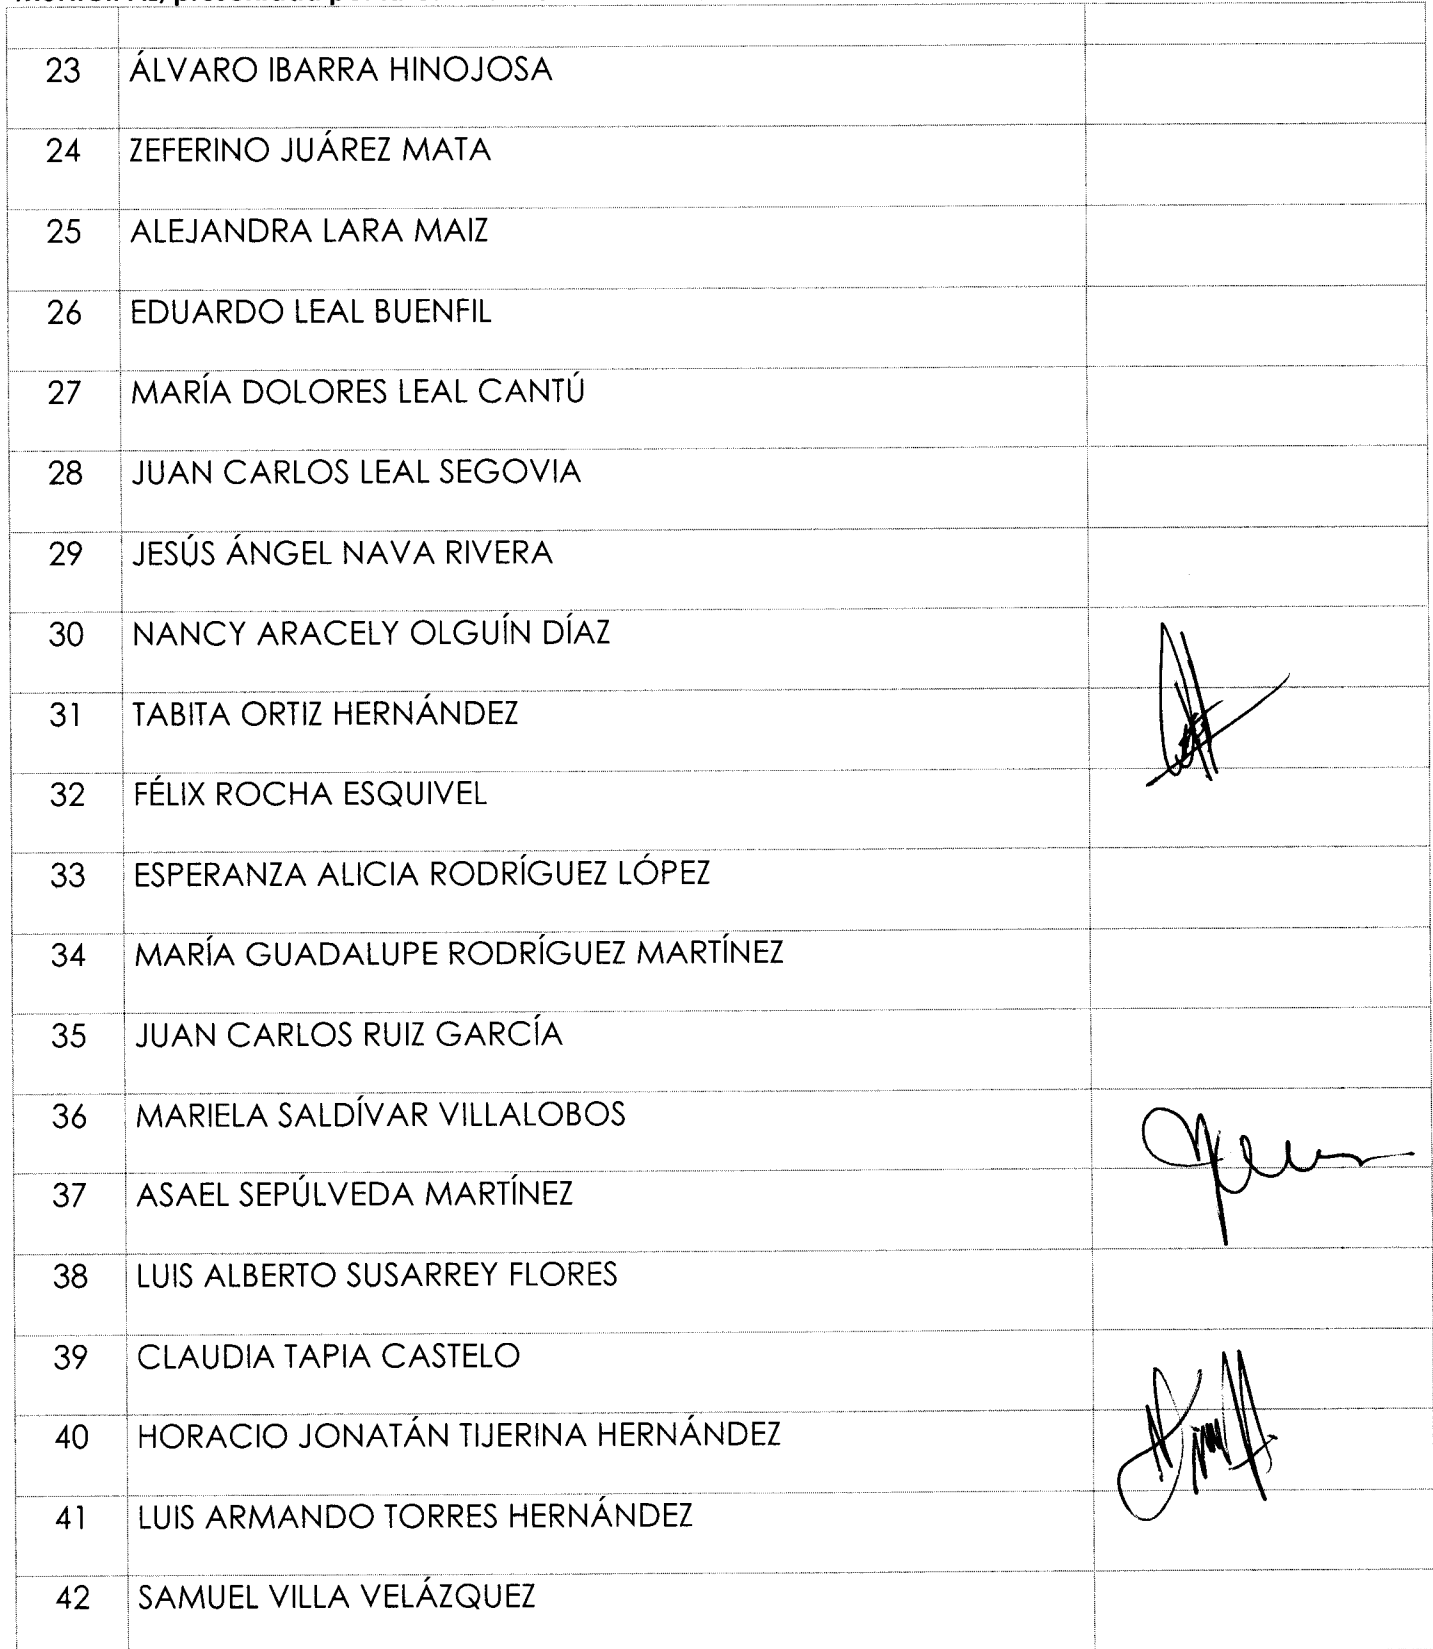 23 ÁLVARO IBARRA HINOJOSA
24 ZEFERINO JUÁREZ MATA
25 ALEJANDRA LARA MAIZ
26 EDUARDO LEAL BUENFIL
27 MARÍA DOLORES LEAL CANTÚ
28 JUAN CARLOS LEAL SEGOVIA
29 JESÚS ÁNGEL NAVA RIVERA
30 NANCY ARACELY OLGUÍN DÍAZ
31 TABITA ORTIZ HERNÁNDEZ
32 FÉLIX ROCHA ESQUIVEL
33 ESPERANZA ALICIA RODRÍGUEZ LÓPEZ
34 MARÍA GUADALUPE RODRÍGUEZ MARTÍNEZ
35 JUAN CARLOS RUIZ GARCÍA
36 MARIELA SALDÍVAR VILLALOBOS
37 ASAEL SEPÚLVEDA MARTÍNEZ
38 LUIS ALBERTO SUSARREY FLORES
39 CLAUDIA TAPIA CASTELO
40 HORACIO JONATÁN TIJERINA HERNÁNDEZ
41 LUIS ARMANDO TORRES HERNÁNDEZ
42 SAMUEL VILLA VELÁZQUEZ